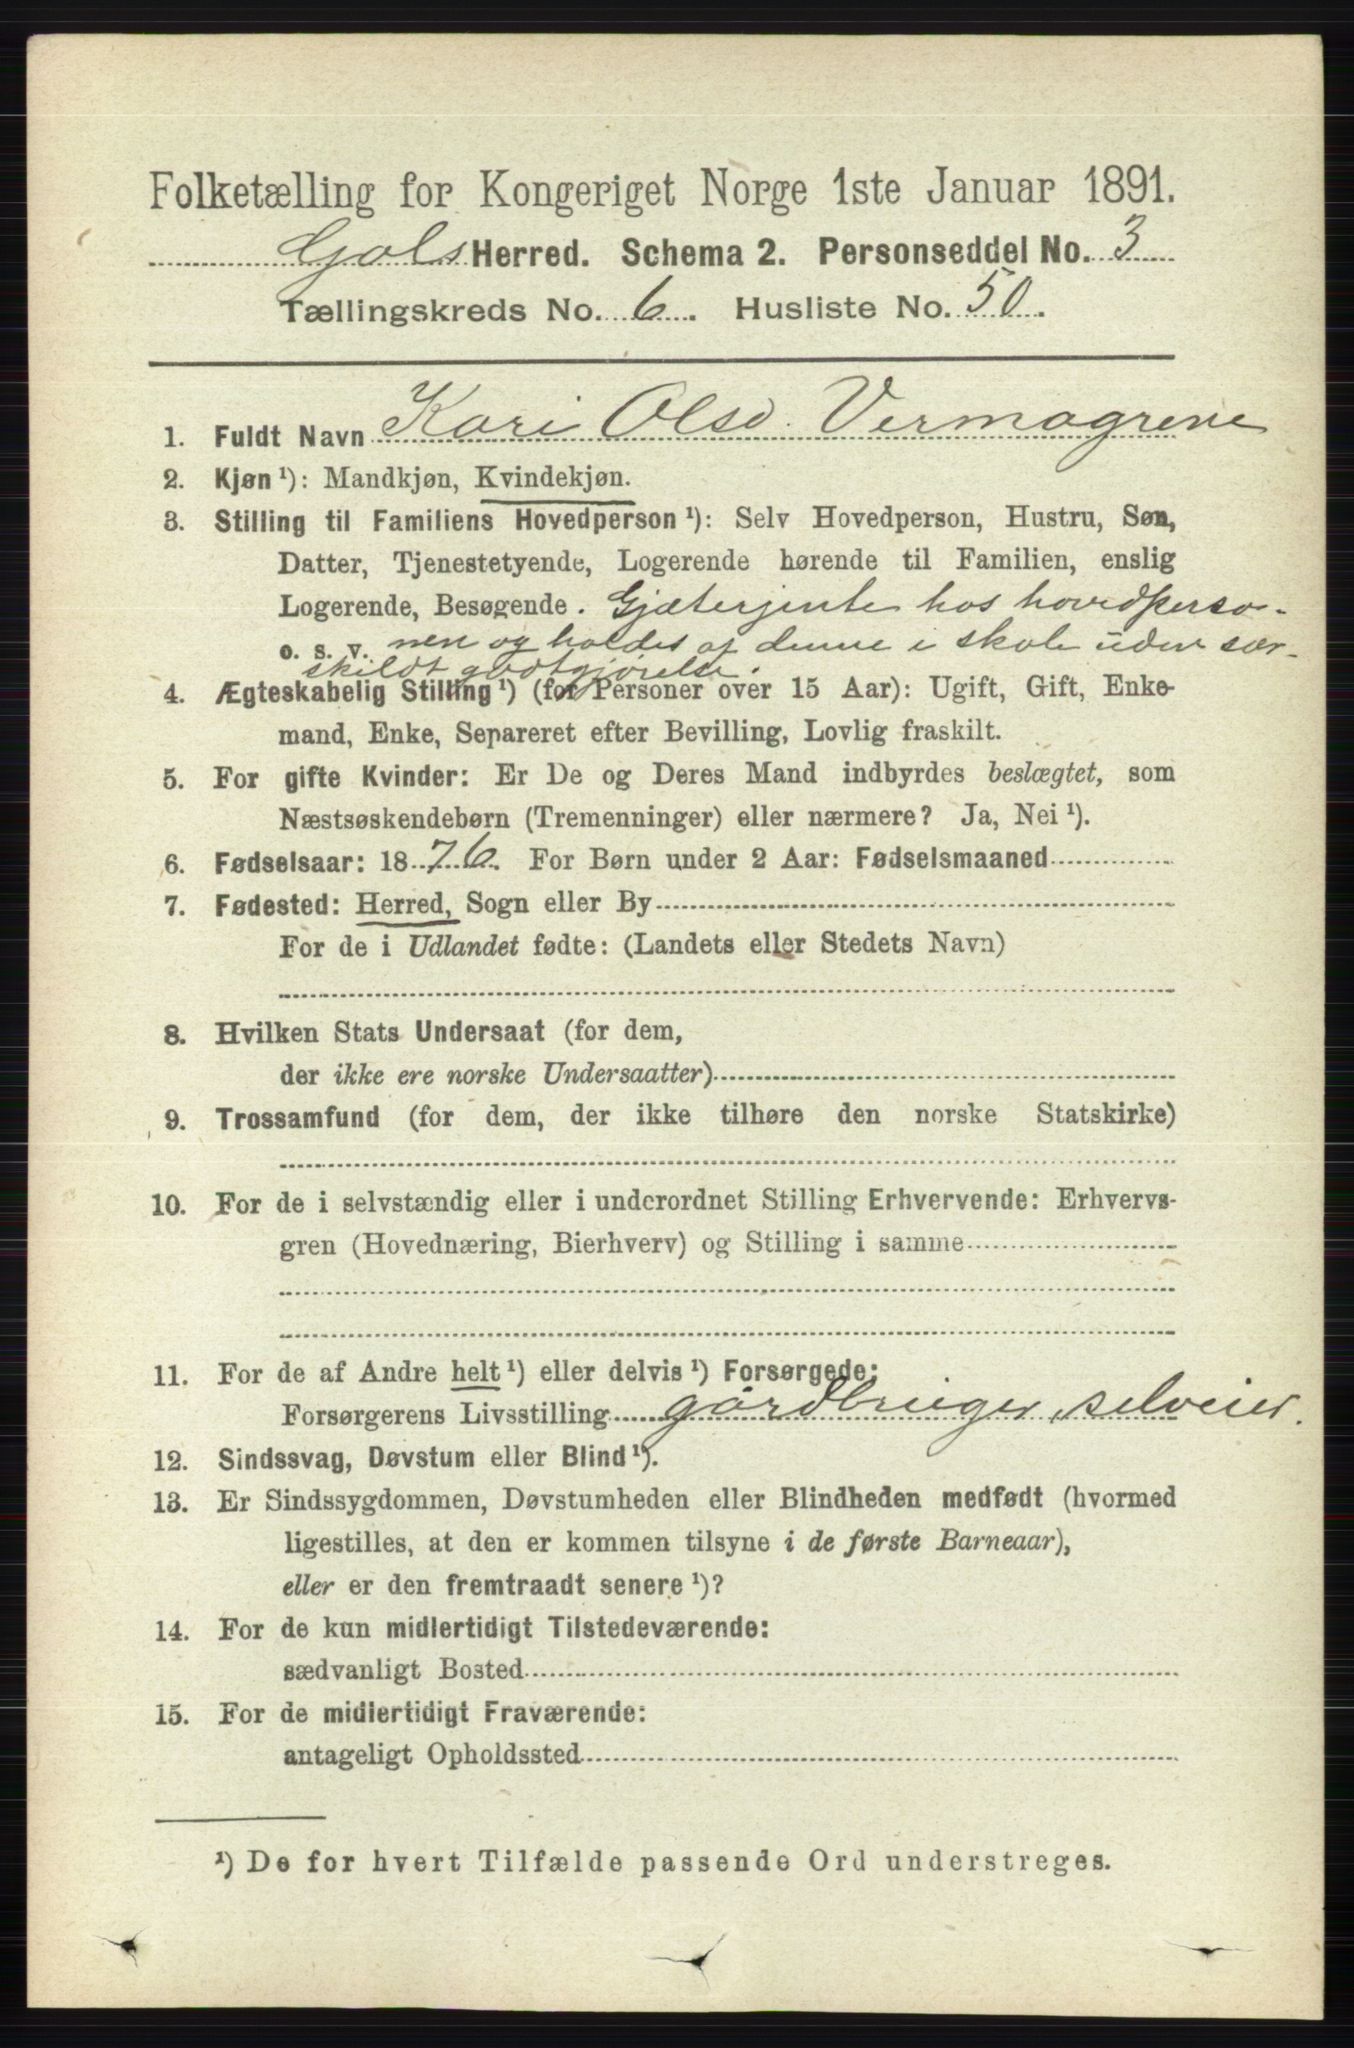 Folketælling for Kongeriget Norge 1ste Januar 1891.
Gols Herred. Schema 2. Personseddel No. 3
Tællingskreds No. 6. Husliste No. 50.
1. Fuldt Navn Kari Olsd. Vermagrene
2. Kjøn ¹): Mandkjøn, Kvindekjøn.
3. Stilling til Familiens Hovedperson ¹): Selv Hovedperson, Hustru, Søn,
Datter, Tjenestetyende, Logerende hørende til Familien, enslig
Logerende, Besøgende. Gjæterjente hos hovedperso-
o. s. v. nen og holdes af denne i skole uden sær-
skildt godtgjørelse.
4. Ægteskabelig Stilling ¹) (for Personer over 15 Aar): Ugift, Gift, Enke-
mand, Enke, Separeret efter Bevilling, Lovlig fraskilt.
5. For gifte Kvinder: Er De og Deres Mand indbyrdes beslægtet, som
Næstsøskendebørn (Tremenninger) eller nærmere? Ja, Nei ¹).
6. Fødselsaar: 1876. For Børn under 2 Aar: Fødselsmaaned
7. Fødested: Herred, Sogn eller By
For de i Udlandet fødte: (Landets eller Stedets Navn)
8. Hvilken Stats Undersaat (for dem,
der ikke ere norske Undersaatter)
9. Trossamfund (for dem, der ikke tilhøre den norske Statskirke)
10. For de i selvstændig eller i underordnet Stilling Erhvervende: Erhvervs-
gren (Hovednæring, Bierhverv) og Stilling i samme
11. For de af Andre helt ¹) eller delvis ¹) Forsørgede:
Forsørgerens Livsstilling gårdbruger, selveier.
12. Sindssvag, Døvstum eller Blind ¹).
13. Er Sindssygdommen, Døvstumheden eller Blindheden medfødt (hvormed
ligestilles, at den er kommen tilsyne i de første Barneaar),
eller er den fremtraadt senere ¹)?
14. For de kun midlertidigt Tilstedeværende:
sædvanligt Bosted
15. For de midlertidigt Fraværende:
antageligt Opholdssted
¹) De for hvert Tilfælde passende Ord understreges.